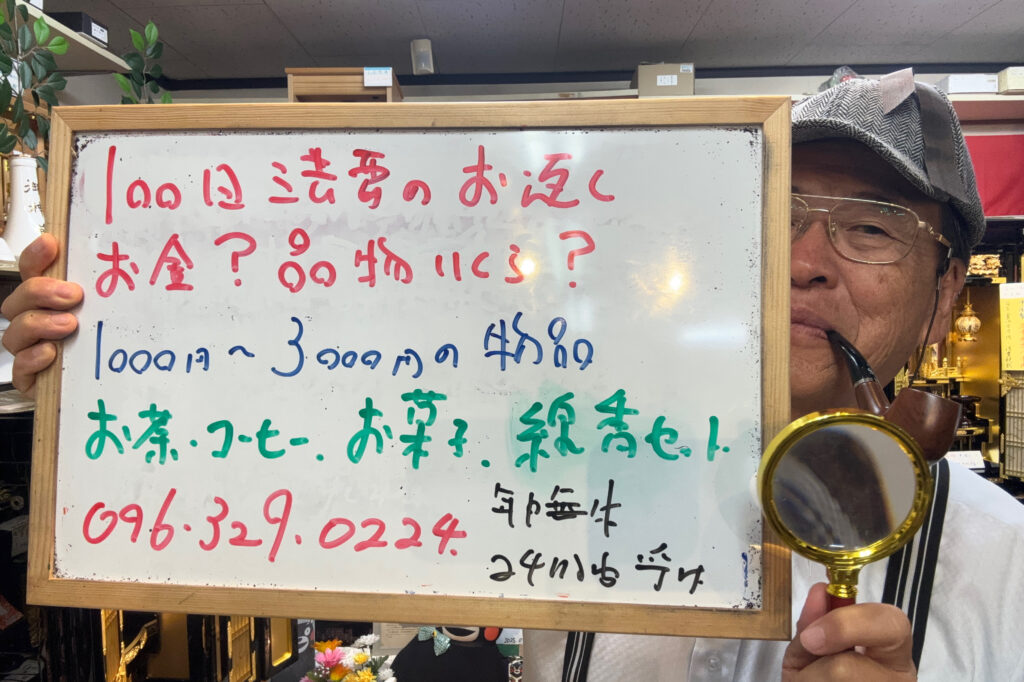 100日法要のお返し
お金？品物いくら？
1000円〜3000円の物品
お茶・コーヒー、お菓子、線香セット
096.329.0224
年中無休
24h 受け